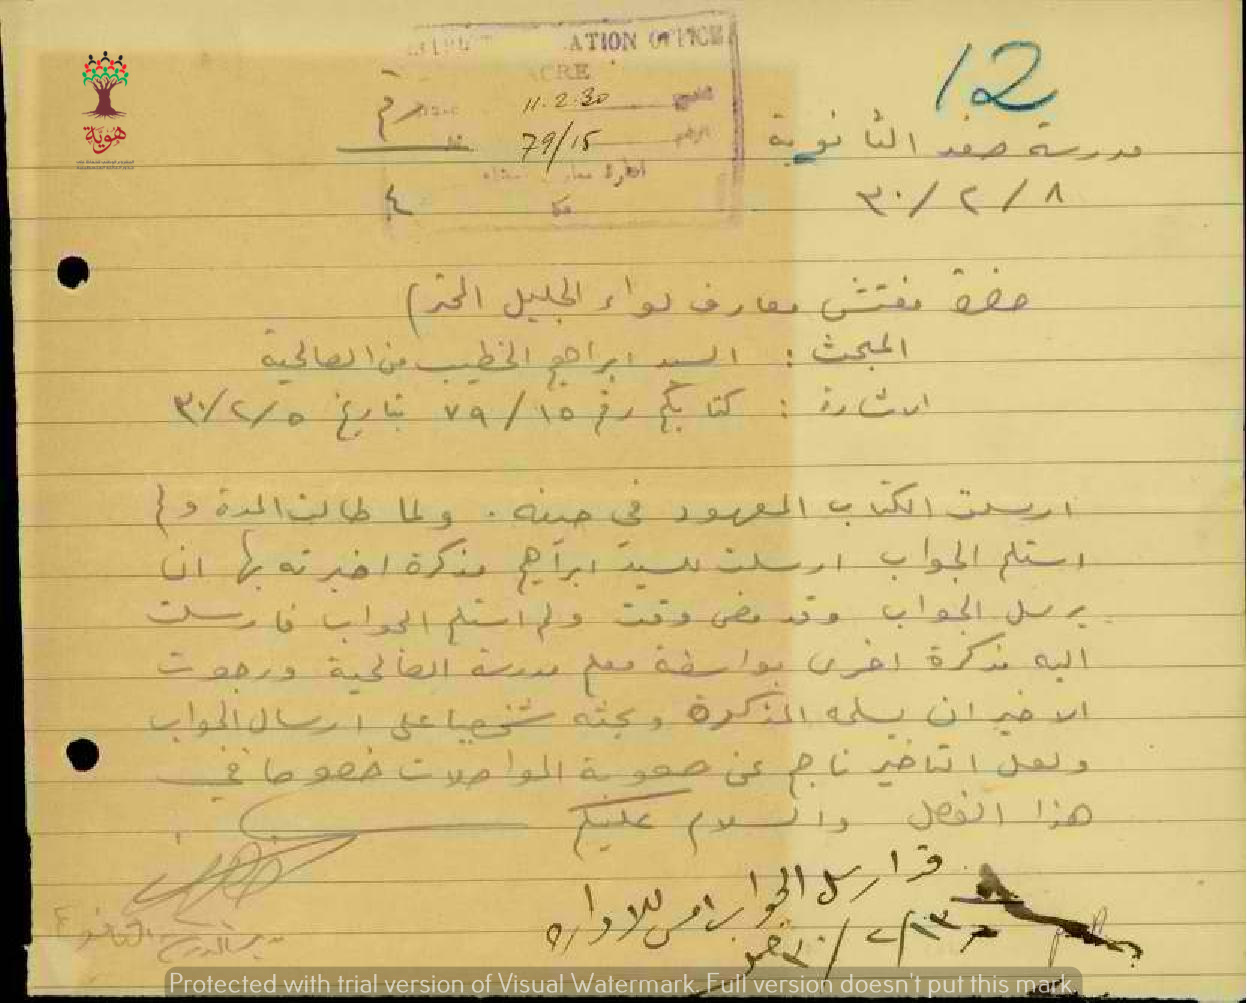 12
ATION OFFICE
ACRE
11.2.30
79/15
عكا
٤
مدرسة صفد الثانوية
٨ / ٢ / ٣٠
حضرة مفتش معارف لواء الجليل المحترم
المبحث : السيد ابراهيم الخطيب من الصالحية
الاشارة : كتابكم رقم ٧٩/١٥ بتاريخ ٥/٢/٣٠
ارسلت الكتاب المعهود في حينه . ولما طالت المدة ولم
استلم الجواب ارسلت للسيد ابراهيم مذكرة اخبرته بها ان
يرسل الجواب وقد مضى وقت ولم استلم الجواب فارسلت
اليه مذكرة اخرى بواسطة معلم مدرسة الصالحية ورجوت
الاخير ان يسلمه المذكرة ويحثه شخصيا على ارسال الجواب
ولعل التاخير ناجم عن صعوبة المواصلات خصوصا في
هذا الفصل والسلام عليكم
قد ارسل الجواب امس للادارة
هوية
Protected with trial version of Visual Watermark. Full version doesn't put this mark.